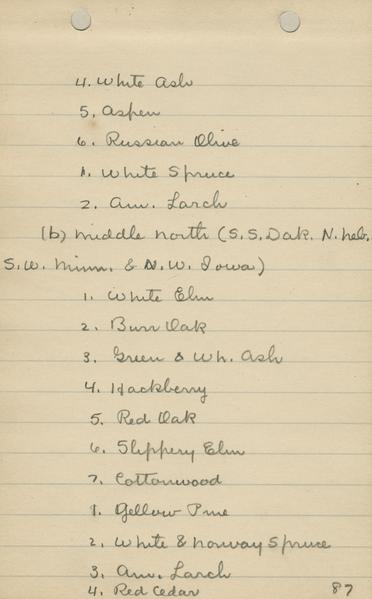 4. White Ash
5. Aspen
6. Russian Olive
1. White Spruce
2. Am. Larch
(b) Middle North (S.S.Dak. N. Neb.
S.W. Minn. & N.W. Iowa)
1. White Elm
2. Burr Oak
3. Green & Wh. Ash
4. Hackberry
5. Red Oak
6. Slippery Elm
7. Cottonwood
1. Yellow Pine
2. White & Norway Spruce
3. Am. Larch
4. Red Cedar 87